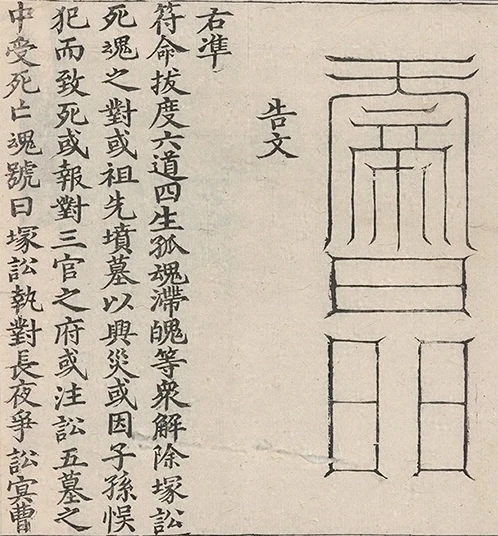 告文
右準
符命拔度六道四生孤魂滯魄等衆解除塚訟
死魂之對或祖先墳墓以興災或因子孫悞
犯而致死或報對三官之府或注訟五墓之
中受死亡魂號曰塚訟執對長夜爭訟冥曹